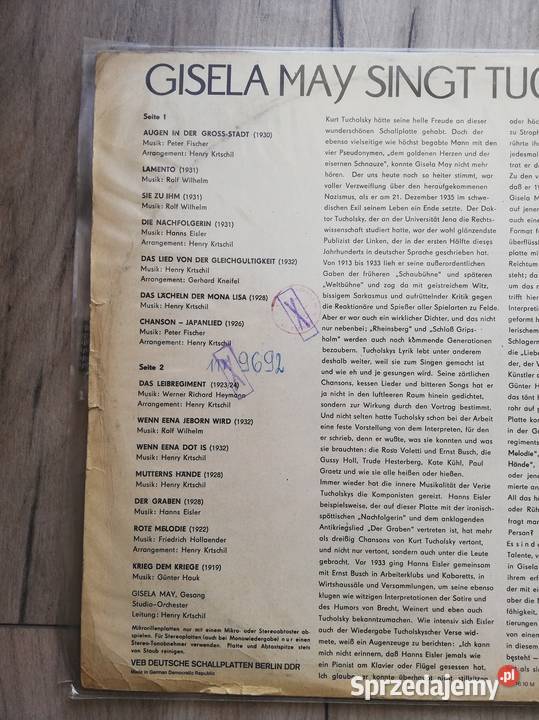 GISELA MAY SINGT TUC
Seite 1
AUGEN IN DER GROSS-STADT (1930)
Musik: Peter Fischer
Arrangement: Henry Krtschil
LAMENTO (1931)
Musik: Rolf Wilhelm
SIE ZU IHM (1931)
Musik: Rolf Wilhelm
DIE NACHFOLGERIN (1931)
Musik: Hanns Eisler
Arrangement: Henry Krtschil
DAS LIED VON DER GLEICHGULTIGKEIT (1932)
Musik: Henry Krtschil
Arrangement: Gerhard Kneifel
DAS LÄCHELN DER MONA LISA (1928)
Musik: Henry Krtschil
CHANSON – JAPANLIED (1926)
Musik: Peter Fischer
Arrangement: Henry Krtschil
X
9692
Seite 2
DAS LEIBREGIMENT (1923/24)
Musik: Werner Richard Heymann
Arrangement: Henry Krtschil
WENN EENA JEBORN WIRD (1932)
Musik: Rolf Wilhelm
WENN EENA DOT IS (1932)
Musik: Henry Krtschil
MUTTERNS HÄNDE (1928)
Musik: Henry Krtschil
DER GRABEN (1928)
Musik: Hanns Eisler
ROTE MELODIE (1922)
Musik: Friedrich Hollaender
Arrangement: Henry Krtschil
KRIEG DEM KRIEGE (1919)
Musik: Günter Hauk
GISELA MAY, Gesang
Studio-Orchester
Leitung: Henry Krtschil
Mikrorillenplatten nur mit einem Mikro- oder Stereoabtaster ab-
spielen. Für Stereoplatten (auch bei Monowiedergabe) nur einen
Stereo-Tonabnehmer verwenden. Platte und Abtastspitze stets
von Staub reinigen.
VEB DEUTSCHE SCHALLPLATTEN BERLIN DDR
Made in German Democratic Republic
Kurt Tucholsky hätte seine helle Freude an dieser
wunderschönen Schallplatte gehabt. Doch der
ebenso vielseitige wie höchst begabte Mann mit den
vier Pseudonymen, „dem goldenen Herzen und der
eisernen Schnauze", konnte Gisela May nicht mehr
hören. Der uns heute noch so heiter stimmt, war
voller Verzweiflung über den heraufgekommenen
Nazismus, als er am 21. Dezember 1935 im schwe-
dischen Exil seinem Leben ein Ende setzte. Der Dok-
tor Tucholsky, der an der Universität Jena die Rechts-
wissenschaft studiert hatte, war der wohl glänzendste
Publizist der Linken, der in der ersten Hälfte dieses
Jahrhunderts in deutscher Sprache geschrieben hat.
Von 1913 bis 1933 lieh er seine außerordentlichen
Gaben der früheren „Schaubühne" und späteren
„Weltbühne" und zog da mit geistreichem Witz,
bissigem Sarkasmus und aufrüttelnder Kritik gegen
die Reaktionäre und Spießer aller Spielarten zu Felde.
Aber er war auch ein wirklicher Dichter, und das nicht
nur nebenbei; „Rheinsberg" und „Schloß Grips-
holm" werden auch noch kommende Generationen
bezaubern. Tucholskys Lyrik lebt unter anderem
deshalb weiter, weil sie zum Singen gemacht ist
und wie eh und je gesungen wird. Seine zärtlichen
Chansons, kessen Lieder und bitteren Songs hat er
ja nicht in den luftleeren Raum hinein gedichtet,
sondern zur Wirkung durch den Vortrag bestimmt.
Und nicht selten hatte Tucholsky schon bei der Arbeit
eine feste Vorstellung von dem Interpreten, für den
er schrieb, denn er wußte, was sie konnten und was
sie brauchten: die Rosa Valetti und Ernst Busch, die
Gussy Holl, Trude Hesterberg, Kate Kühl, Paul
Graetz und wie sie alle heißen oder hießen.
Immer wieder hat die innere Musikalität der Verse
Tucholskys die Komponisten gereizt. Hanns Eisler
beispielsweise, der auf dieser Platte mit der ironisch-
spöttischen „Nachfolgerin" und dem anklagenden
Antikriegslied „Der Graben" vertreten ist, hat mehr
als dreißig Chansons von Kurt Tucholsky vertont,
und nicht nur vertont, sondern auch unter die Leute
gebracht. Vor 1933 ging Hanns Eisler gemeinsam
mit Ernst Busch in Arbeiterklubs und Kabaretts, in
Wirtshaussäle und Versammlungen, um seine ebenso
klugen wie witzigen Interpretationen der Satire und
des Humors von Brecht, Weinert und eben auch
Tucholsky bekanntzumachen. Wie intensiv sich Eisler
auch der Wiedergabe Tucholskyscher Verse wid-
mete, weiß ein Augenzeuge zu berichten: „Ich kann
mich nicht erinnern, daß Hanns Eisler jemals wie
ein Pianist am Klavier oder Flügel gesessen hat.
Ich glaube, er konnte überhaupt nicht stillsitzen
Sprzedajemy.pl